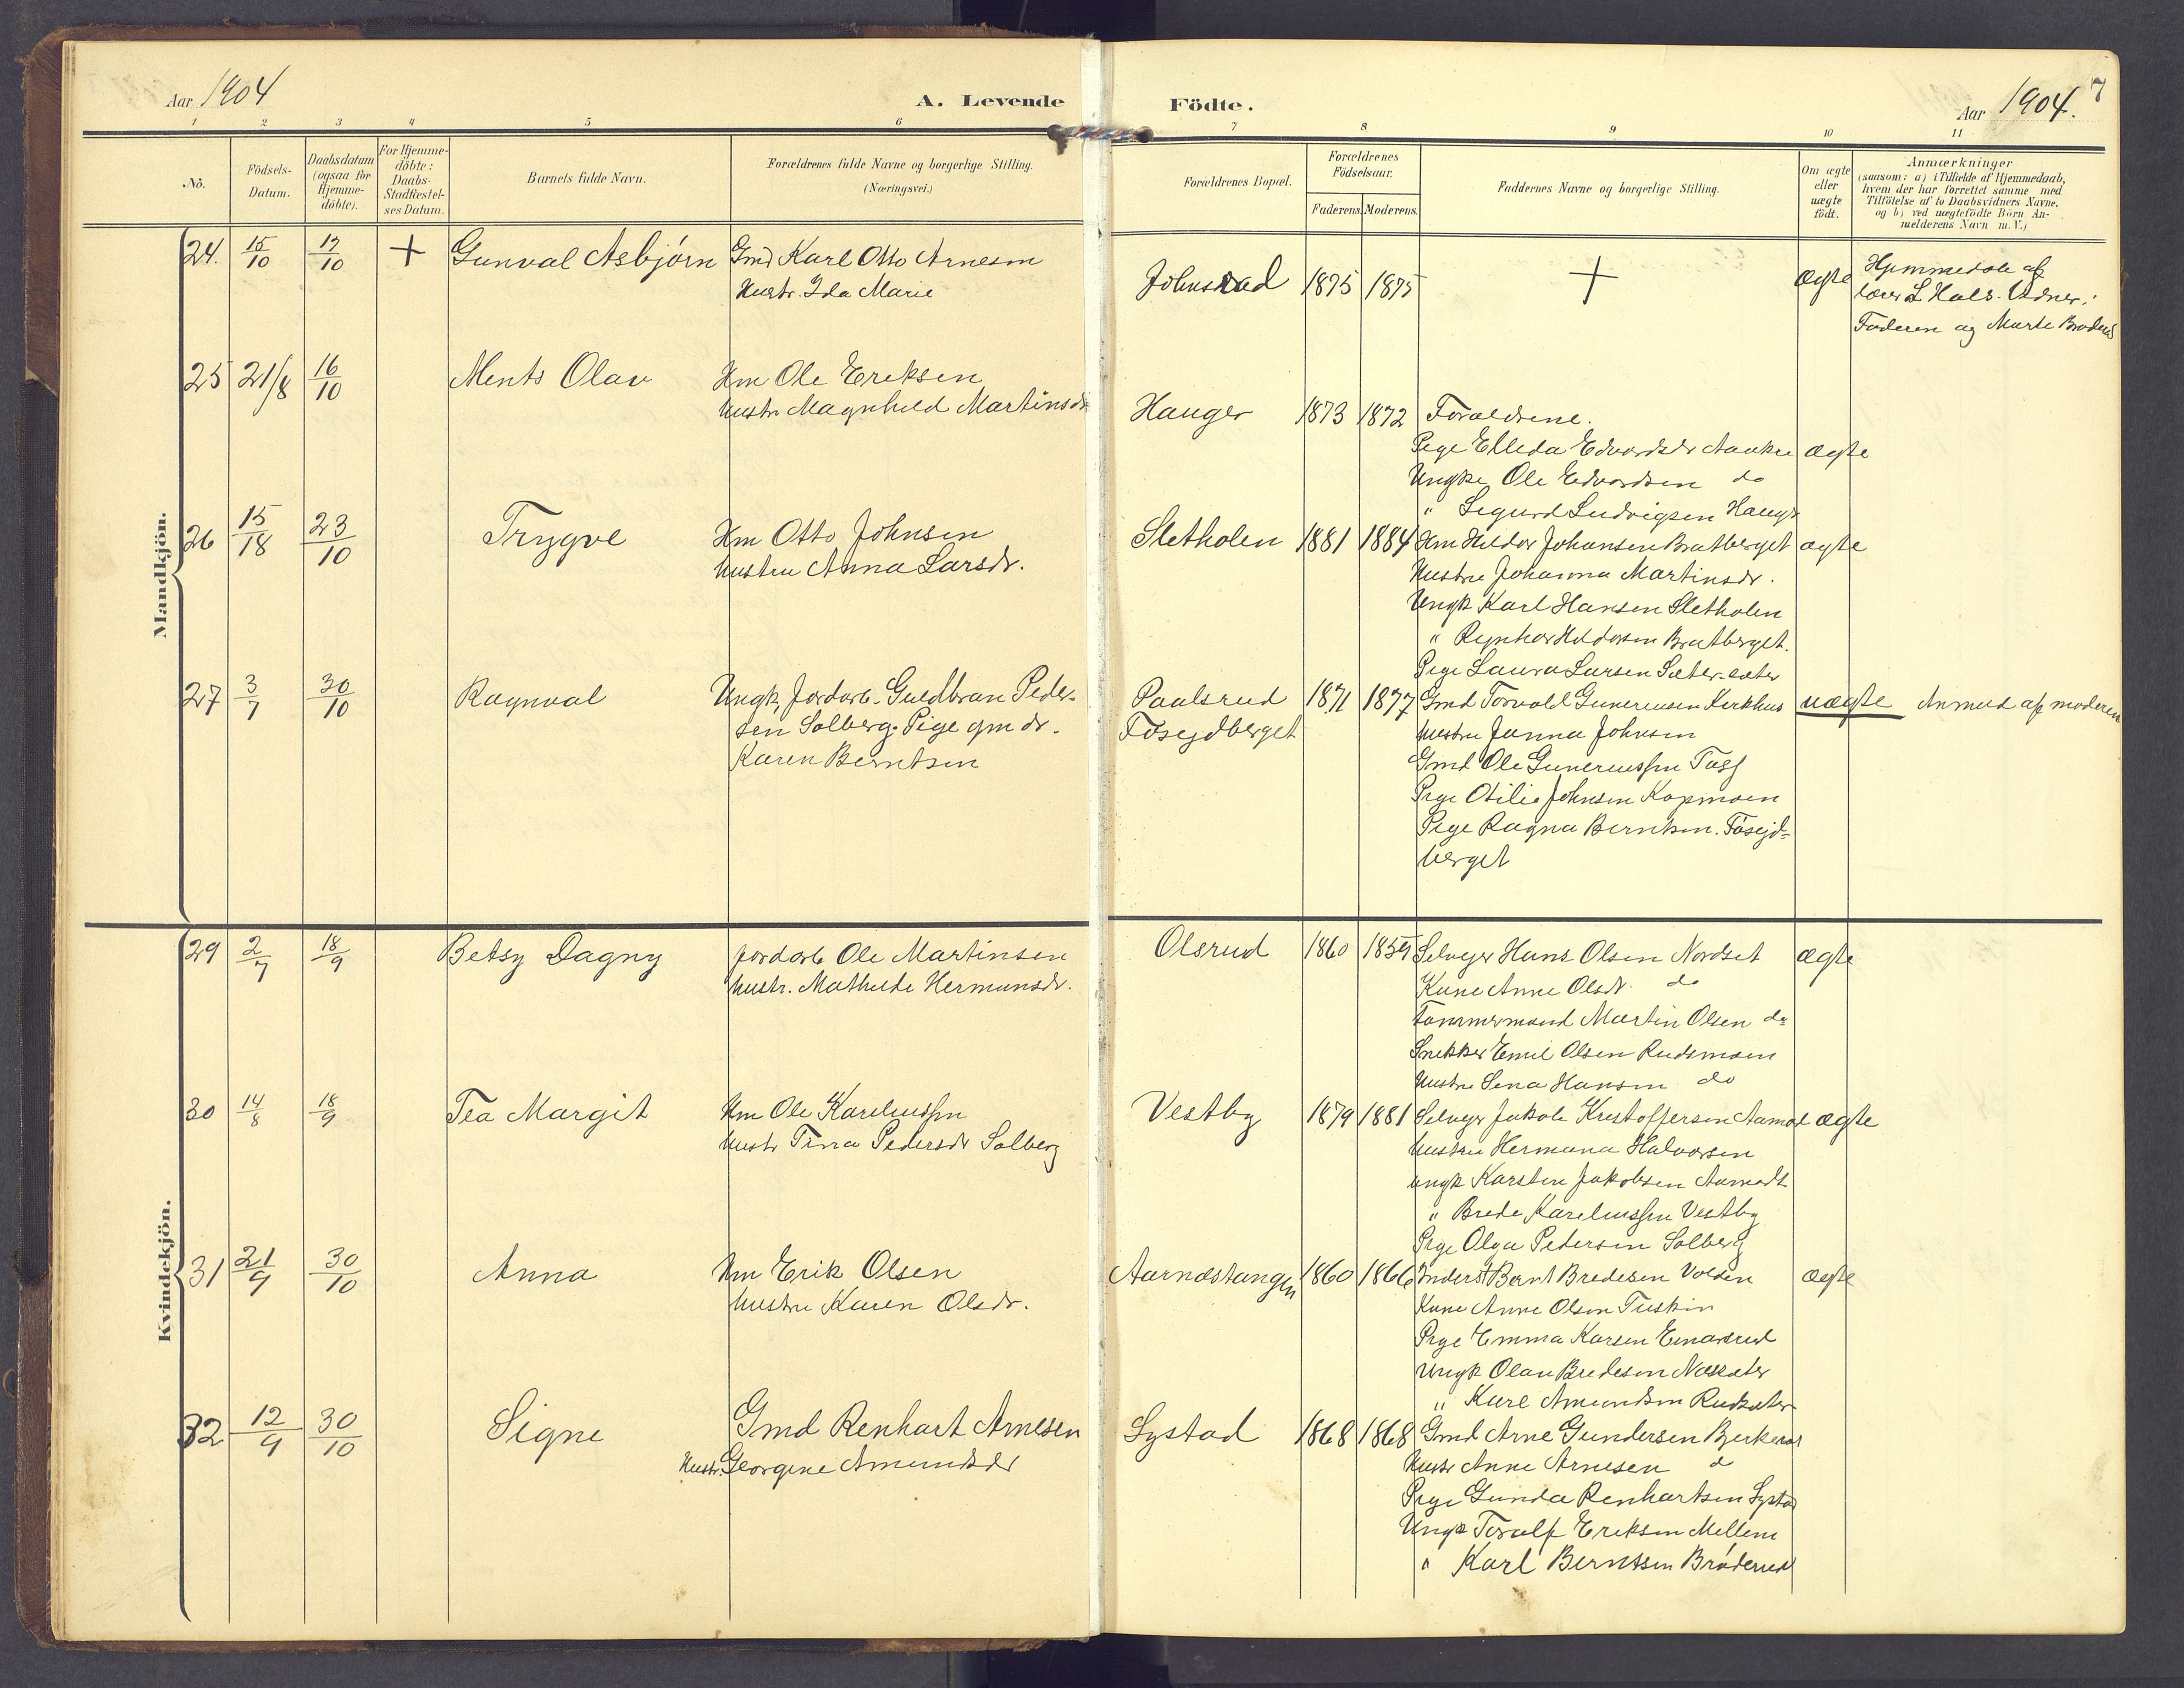 Aar 1904
A. Levende
Födte.
Aar 1904.
7
1 2 3 4 5 6 7 8 9 10 11
No.
Födsels-Datum.
Daabsdatum (ogsaa for Hjemme-döbte).
For Hjemme-döbte: Daabs-Stadfæstel-ses Datum.
Barnets fulde Navn.
Forældrenes fulde Navne og borgerlige Stilling. (Næringsvei.)
Forældrenes Bopæl.
Forældrenes Födselsaar.
Faderens. Moderens.
Faddernes Navne og borgerlige Stilling.
Om ægte eller uægte födt.
Anmærkninger
(saasom: a) i Tilfælde af Hjemmedaab,
hvem der har forrettet samme med
Tilföielse af to Daabsvidners Navne.
og b) ved uægtefödte Börn An-
melderens Navn m. V.)
Mandkjön.
24. 15/10 17/10 + Gunval Asbjørn Gmd Karl Otto Arnesen
Hustr. Ida Marie
Johnsrud 1875 1875 + Ægte Hjemmedøb af
lærer L Hals. Vidner:
Faderen og Marte
25 21/8 16/10 Ments Olav Hm Ole Eriksen
Hustr Magnhild Martinsdr
Hauger 1873 1872 Forældrene.
Pige Elleda Edvardsdr Aauken ægte
Ungke Ole Edvardsen do
" Sigurd Ludvigsen Hauger
26 15/18 23/10 Trygve Hm Otto Johnsen
Hustru Anna Larsdr.
Sletholen 1881 1884 Hm Hildor Johansen Bratberget ægte
Hustru Johanna Martinsdr.
Ungk Karl Hansen Sletholen
" Reynhar Hildorsen Bratberget.
Pige Laura Larsen Sæter-sæter
27 3/7 30/10 Ragnval Ungk, Jordarb. Guldbran Peder-
sen Solberg. Pige gm dr.
Karen Berntsen
Paalsrud 1871 1877 Gmd Torvald Gunerensen Kirkhus uægte Anmeld af moderen
Fosejdberget Hustru Janna Johnsen
Gmd Ole Gunereussen Foss
Pige Otilie Johnsen Kopmoen
Pige Ragna Berntsen. Fosejd-
berget
Kvindekjön.
29 2/7 18/9 Betsy Dagny Jordarb Ole Martinsen
Hustr. Mathilde Hermunsdr.
Olsrud 1860 1859 Selveger Hans Olsen Nordset ægte
Kone Anne Olsdr. do
Tømmermand Martin Olsen do
Snekker Emil Olsen Rudsmoen
Hustru Lena Hansen do
30 14/8 18/9 Tea Margit Hm Ole Kareliussen
Hustr Tina Pedersdr Solberg
Vestby 1879 1881 Selveger Jakob Kristoffersen Aamot ægte
Hustru Hermana Halvorsen
ungk Karsten Jakobsen Aamodt
" Brede Kareliussen Vestby
Pige Olga Pedersen Solberg
31 21/9 30/10 Anna Hm Erik Olsen
Hustru Karen Olsdr.
Aarnæstangen 1860 1866 Inderst Bernt Bredesen Volden ægte
Kone Anne Olsen Tuskin
Pige Emma Karsen Einarsrud
Ungk Olau Bredesen Næssæter
" Karl Amundsen Rudsæter
32 12/9 30/10 Signe Gmd Renhart Arnesen
Hustr. Georgine Amundsdr
Systad 1868 1868 Gmd Arne Gundersen Bjerkerør
Hustr Anne Arnesen d
Pige Gunda Renhartsen Systad
Ungk Torolf Eriksen Mellem
" Karl Berntsen Brøderud